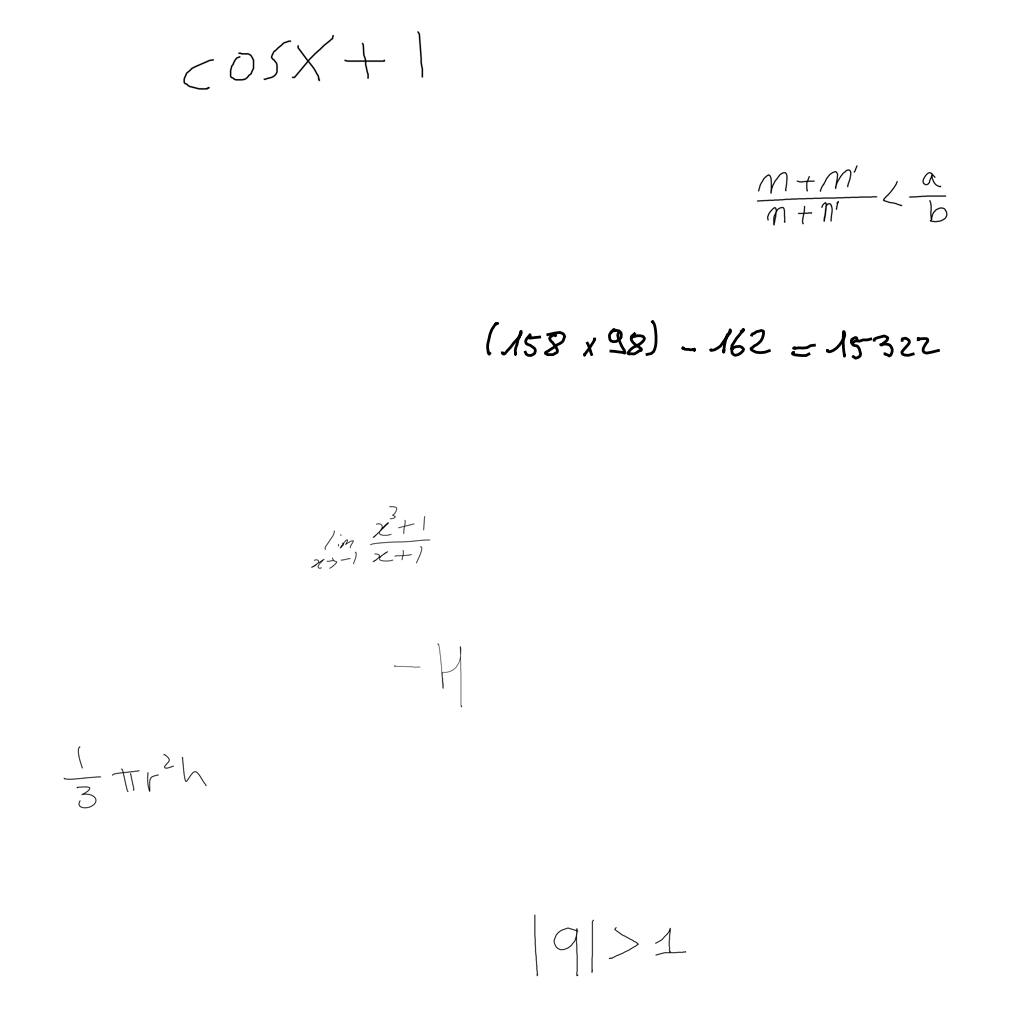 cosx+1
\frac{m+m'}{n+n'}<\frac{a}{b}
(158×98)-162=15322
\lim_{x→-1}\frac{x^3+1}{x+1}
-H
\frac{1}{3}πr^2h
|q|>1